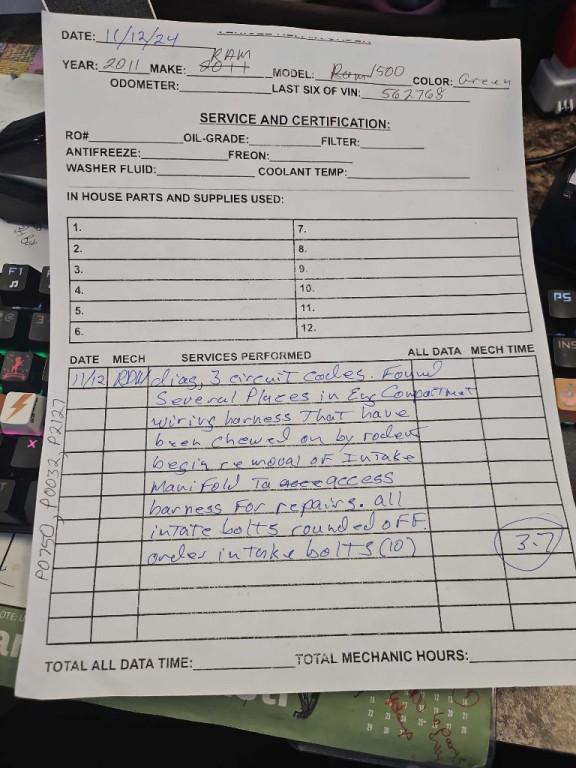 DATE: 11/12/24
YEAR: 2011 MAKE: 2011 RAM MODEL: Ram 1500 COLOR: Green
ODOMETER: LAST SIX OF VIN: 562768
SERVICE AND CERTIFICATION:
RO# OIL-GRADE: FILTER:
ANTIFREEZE: FREON:
WASHER FLUID: COOLANT TEMP:
IN HOUSE PARTS AND SUPPLIES USED:
1. 7.
2. 8.
3. 9.
4. 10.
5. 11.
6. 12.
DATE MECH SERVICES PERFORMED ALL DATA MECH TIME
11/12 RDM diag, 3 circuit codes. Found
Several Places in Eng Compartment
wiring harness That have
been chewed on by rodent
begin removal of Intake
Manifold To access
harness For repairs. all
intake bolts rounded off.
order intake bolts (10) 3.7
P0750, P0032, P2127
TOTAL ALL DATA TIME: TOTAL MECHANIC HOURS:
F1
PS
INS